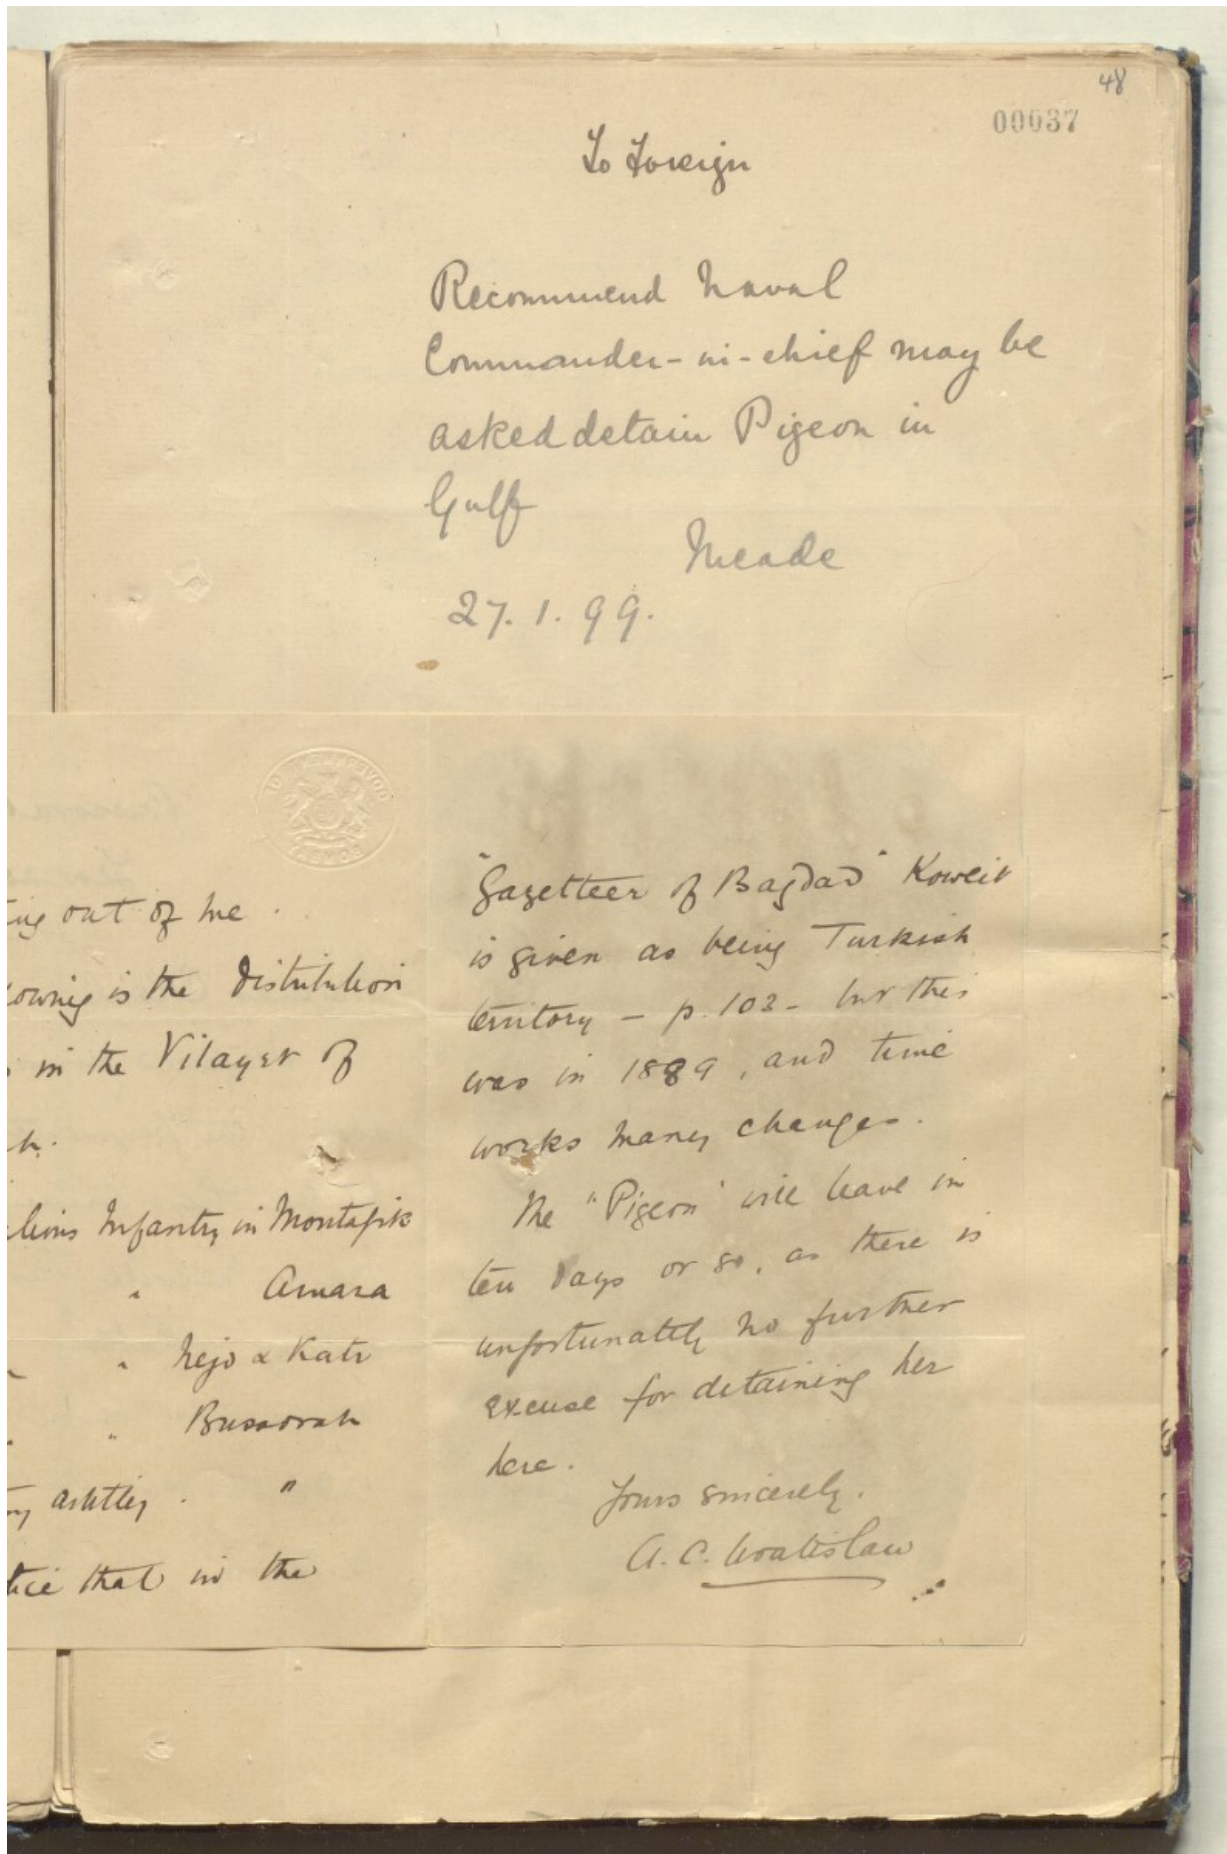 48
00037
To Foreign
Recommend Naval
Commander-in-chief may be
asked detain Pigeon in
Gulf
Meade
27. 1. 99.
GOVERNMENT OF
BOMBAY
out of me.
is the distribution
in the Vilayet of
h.
Infantry in Montafik
" Amara
" Nejd & Katr
" " Bussorah
"
that in the
"Gazetteer of Bagdad" Koweit
is given as being Turkish
territory – p. 103 – but this
was in 1889, and time
works many changes.
The "Pigeon" will leave in
ten days or so, as there is
unfortunately no further
excuse for detaining her
here.
Yours sincerely.
A. C. Wratislaw